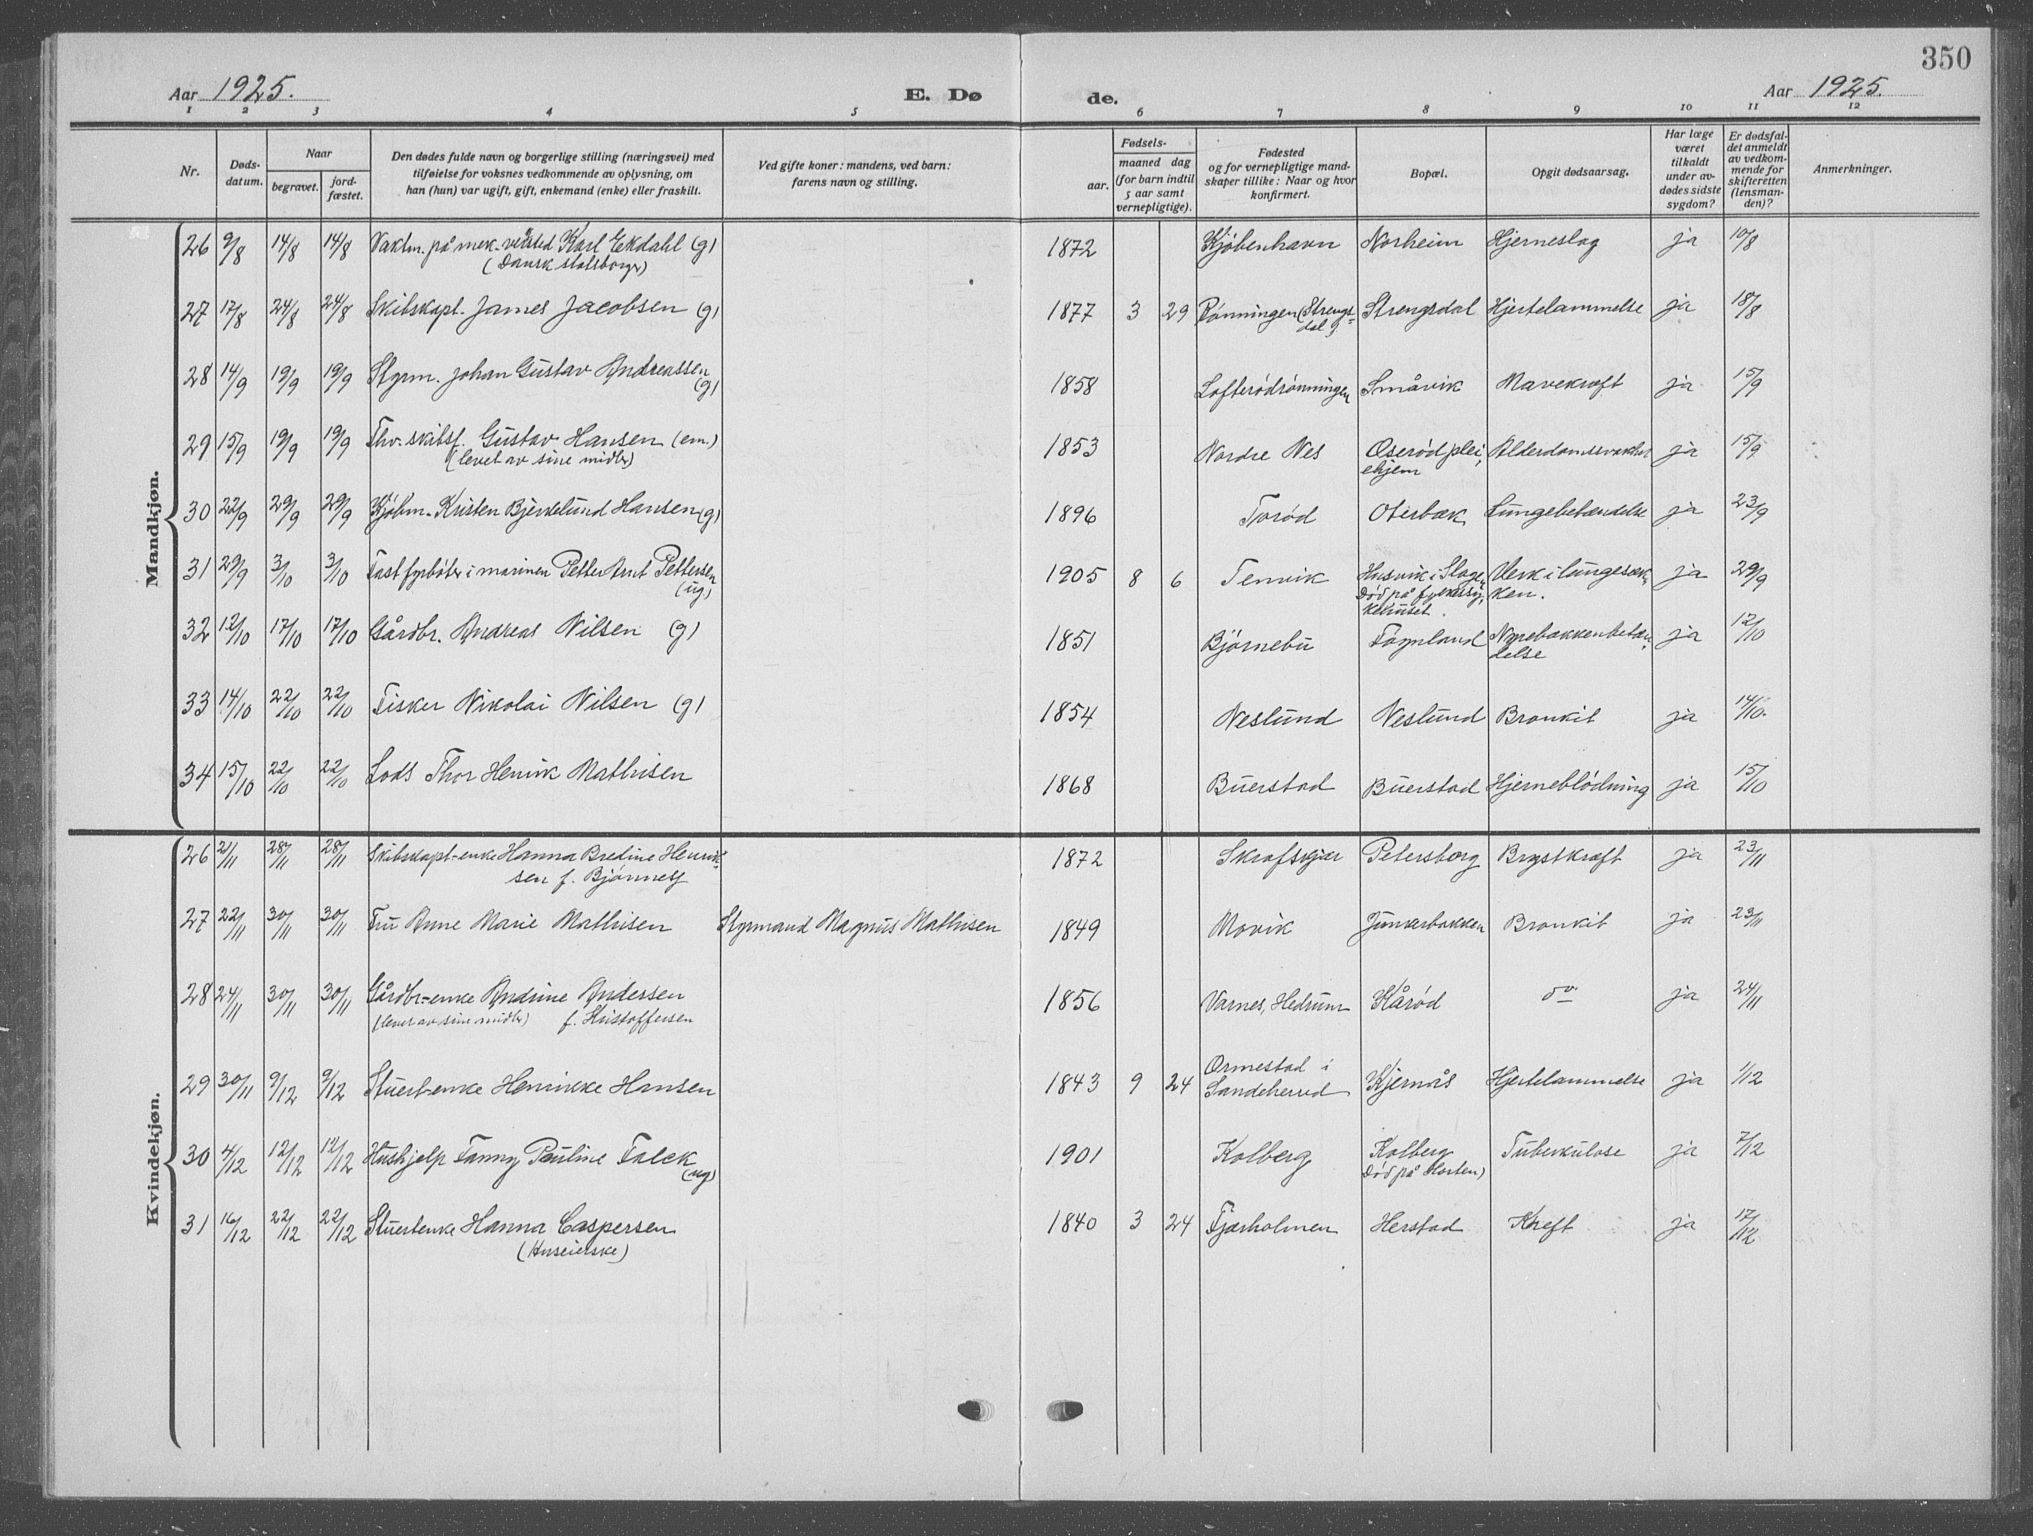 350
Aar 1925. E. Dø de. Aar 1925.
1 2 3 4 5 6 7 8 9 10 11 12
Nr. Døds-datum. Naar begravet. jord-fæstet. Den dødes fulde navn og borgerlige stilling (næringsvei) med tilføielse for voksnes vedkommende av oplysning, om han (hun) var ugift, gift, enkemand (enke) eller fraskilt. Ved gifte koner: mandens, ved barn: farens navn og stilling. Fødsels- aar. maaned dag (for barn indtil 5 aar samt vernepligtige). Fødested og for vernepligtige mand-skaper tillike: Naar og hvor konfirmert. Bopæl. Opgit dødsaarsag. Har læge været tilkaldt under av-dødes sidste sygdom? Er dødsfal-det anmeldt av vedkom-mende for skifteretten (lensman-den)? Anmerkninger.
Mandkjøn.
26 9/8 14/8 14/8 Vaktm. på mek. verksted Karl Ekdahl (g) 1872 Kjøbenhavn Norheim Hjerneslag ja 10/8
(Dansk statsborger)
27 17/8 24/8 24/8 Skibskapt. James Jacobsen (g) 1877 3 29 Rønningen (Strengs- Strengsdal Hjertelammelse ja 18/8
dal)
28 14/9 19/9 19/9 Styrm. Johan Gustav Andreassen 1858 Lofterødrønningen Småvik Mavekræft ja 15/9
(g)
29 15/9 19/9 19/9 Fhv. skibsf. Gustav Hansen (em.) 1853 Nordre Nes Oserød plei- Alderdomssvakhet ja 15/9
(levet av sine midler) ehjem
30 22/9 29/9 29/9 Kjøbm. Kristen Bjerkelund Hansen (g) 1896 Torød Oterbæk Lungebetændelse ja 23/9
31 29/9 3/10 3/10 Fast fyrbøter i marinen Petter Arnt Pettersen 1905 8 6 Tenvik Husvik i Slagen Verk i lungesæk- ja 29/9
(ug) Død på fylkessy- ken.
kehuset.
32 12/10 17/10 17/10 Gårdbr. Andreas Nilsen (g) 1851 Bjørnebu Føynland Nyrebækkenbetæn- ja 12/10
delse
33 14/10 22/10 22/10 Fisker Nikolai Nilsen (g) 1854 Neslund Neslund Bronkit ja 14/10.
34 15/10 22/10 22/10 Lods Thor Henrik Mathisen 1868 Buerstad Buerstad Hjerneblödning ja 15/10
Kvindekjøn.
26 21/11 28/11 28/11 Skibskapt-enke Hanna Bredine Henrik- 1872 Skrafskjær Petersborg Brystkræft ja 23/11
sen f. Bjönnes
27 22/11 30/11 30/11 Fru Anne Marie Mathisen Styrmand Magnus Mathisen 1849 Movik Junkerbakken Bronkit ja 23/11
28 24/11 30/11 30/11 Gårdbr-enke Andrine Andersen 1856 Varnes, Hedrum Kårød do ja 24/11
(levet av sine midler) f. Kristoffersen
29 30/11 9/12 9/12 Stuert-enke Henrikke Hansen 1843 9 24 Ormestad i Sandeherred Kjernås Hjertelammelse ja 1/12
30 4/12 12/12 12/12 Hushjelp Fanny Pauline Falck 1901 Kolberg Kolberg Tuberkulose ja 7/12
(ug) Død på Horten)
31 16/12 22/12 22/12 Stuertenke Hanna Caspersen 1840 3 24 Fjærholmen Herstad Kreft ja 17/12
(Huseierske)